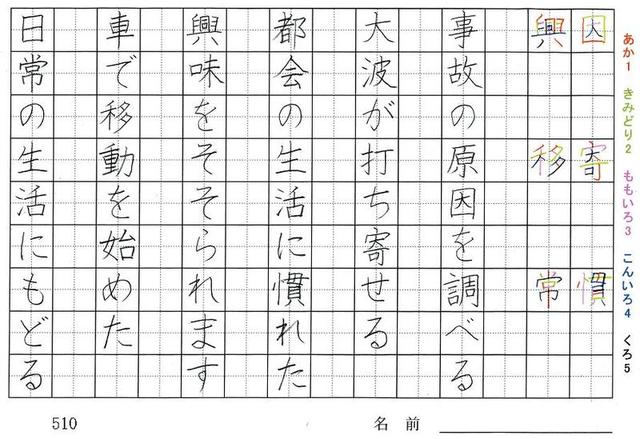 あか1 きみどり2 ももいろ3 こんいろ4 くろ5
因 寄 慣
興 移 常
事故の原因を調べる
大波が打ち寄せる
都会の生活に慣れた
興味をそそられます
車で移動を始めた
日常の生活にもどる
510
名前